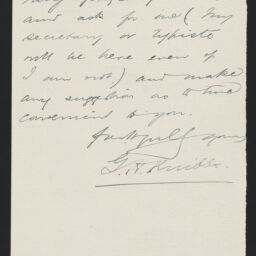 and ask for me (My
secretary or typiste
will be here even if
I am not) and make
any suggestion as to time
convenient to you.
Faithfully yours
G. H. Knibbs.